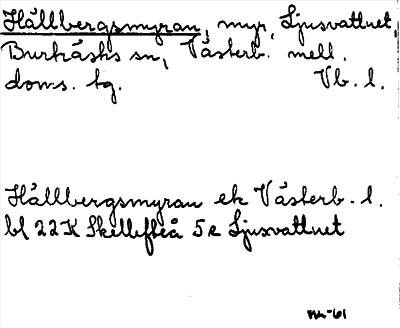 Hällbergsmyran, myr, Ljusvattnet,
Burträsks sn, Västerb. mell.
doms. tg. Vb. l.
Hällbergsmyran ek Västerb. l.
bl 22K Skellefteå 5e Ljusvattnet
-61